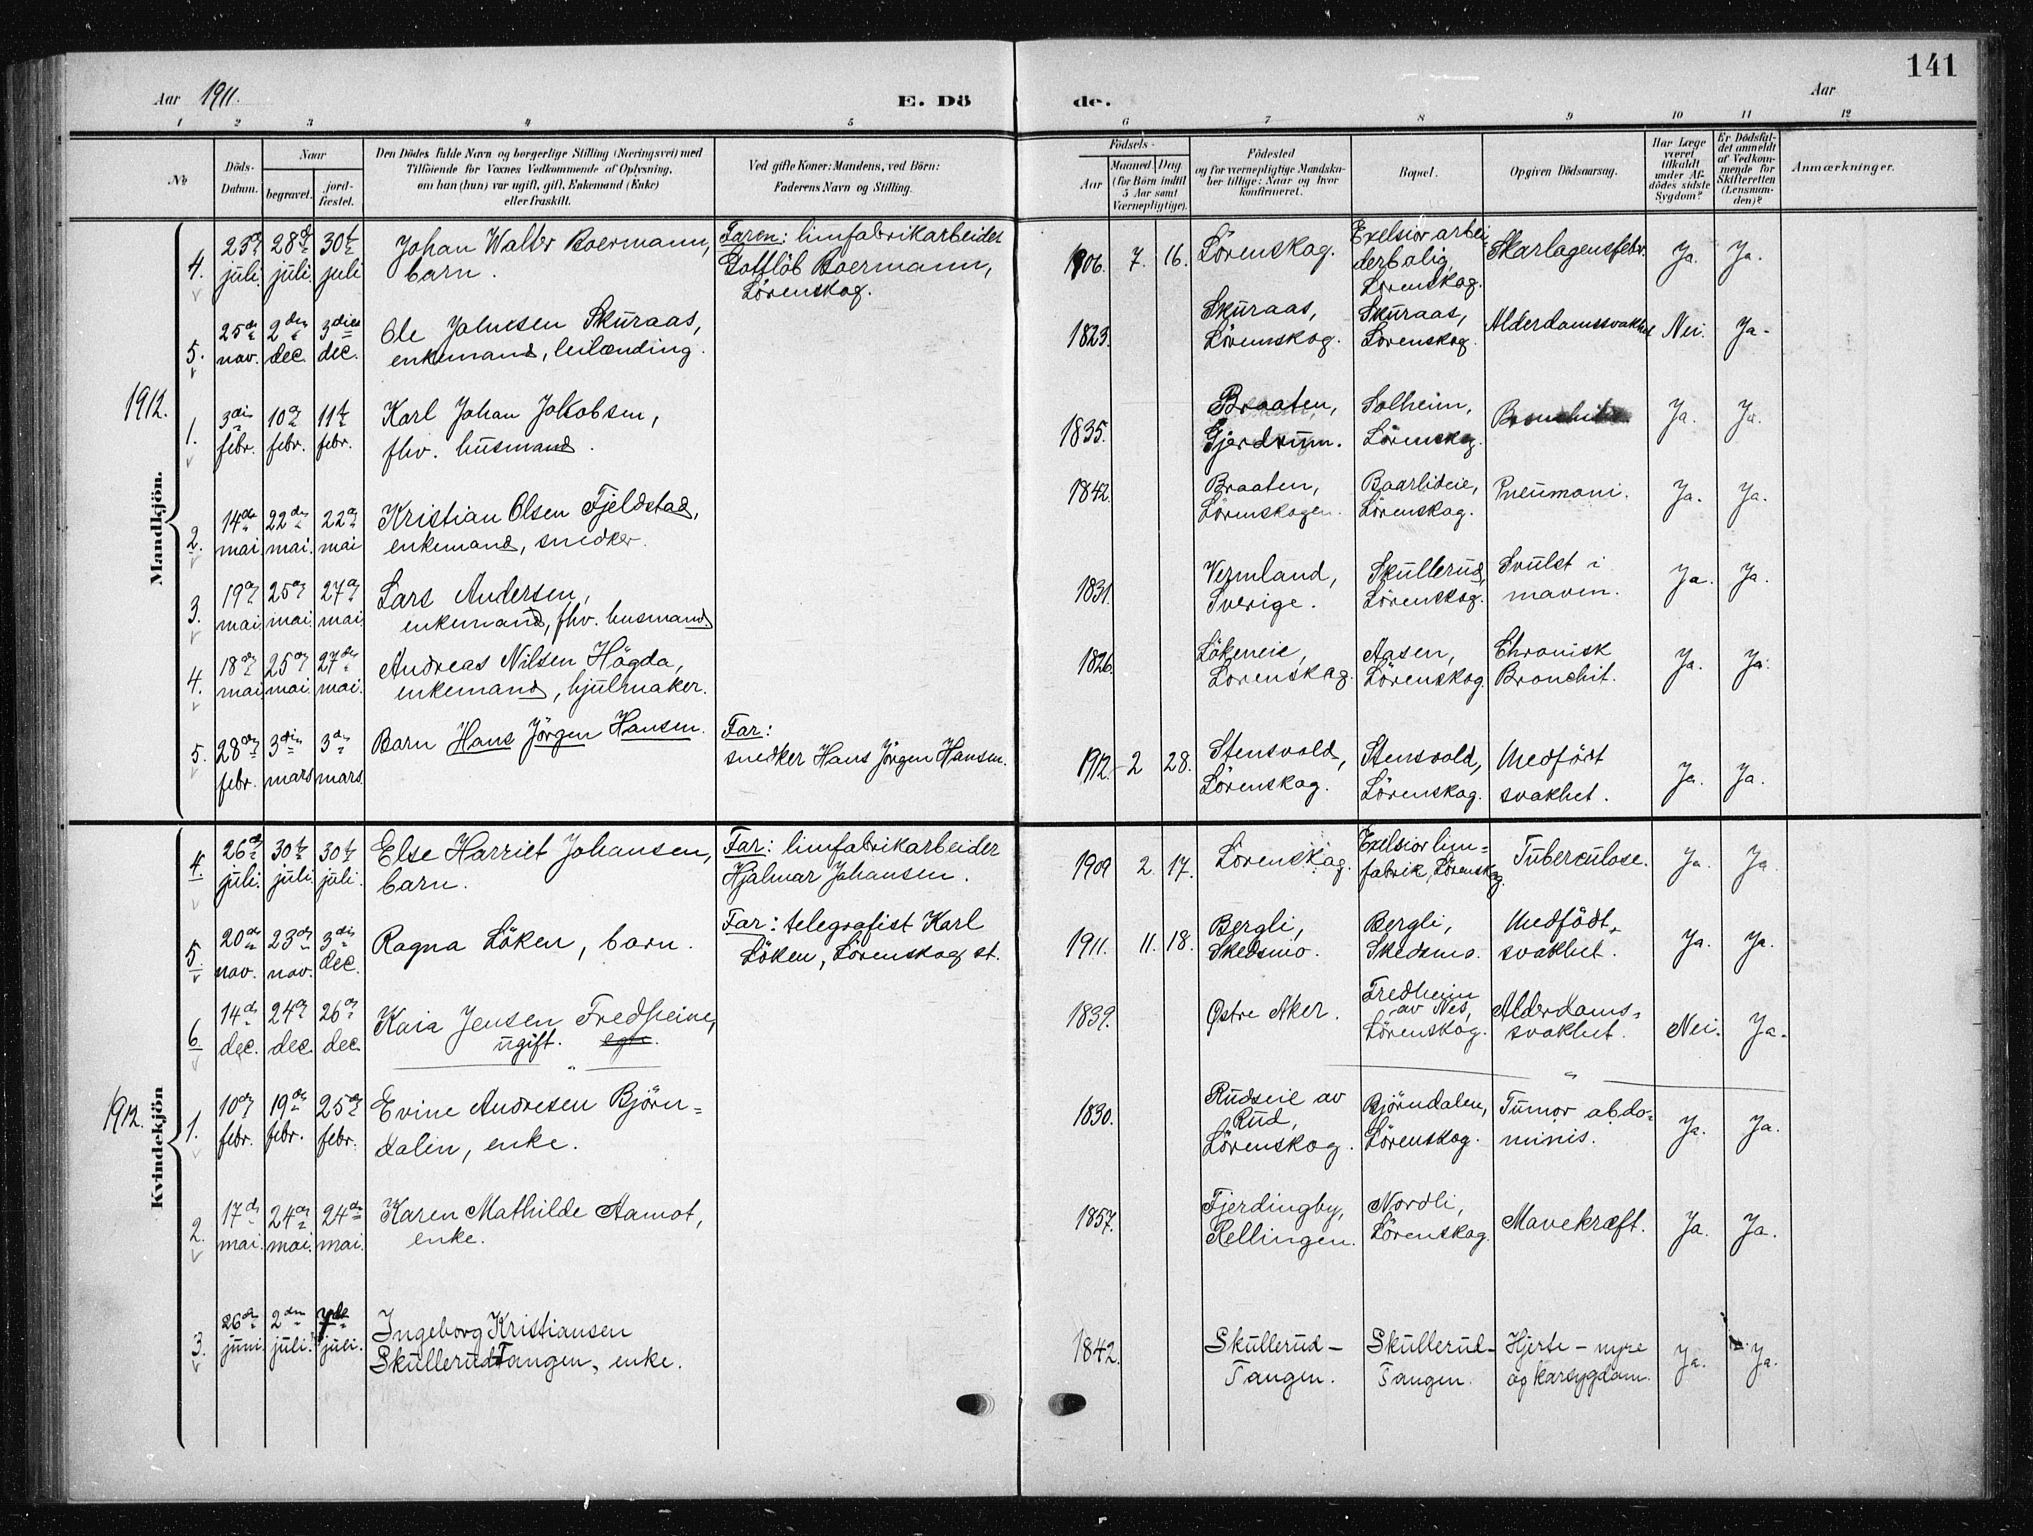 141
Aar 1911.
E. Döde.
Aar
1 2 3 4 5 6 7 8 9 10 11 12
No
Döds-
Datum.
Naar
begravet.
jord-
fæstet.
Den Dödes fulde Navn og borgerlige Stilling (Næringsvei) med
Tilföiende for Voxnes Vedkommende af Oplysning,
om han (hun) var ugift, gift, Enkemand (Enke)
eller fraskilt.
Ved gifte Koner: Mandens, ved Börn:
Faderens Navn og Stilling.
Födsels-
Aar
Maaned Dag
(for Börn indtil
5 Aar samt
Værnepligtige).
Födested
og for værnepligtige Mandsku-
ber tillige: Naar og hvor
konfirmeret.
Bopæl.
Opgiven Dödsaarsag.
Har Læge
været
tilkaldt
under Af-
dödes sidste
Sygdom?
Er Dödsfal-
det anmeldt
af Vedkom-
mende for
Skifteretten
(Lensman-
den)?
Anmærkninger.
Mandkjön.
4. 23de juli. 28de juli. 30te juli
Johan Walter Boermann,
barn.
Faren: limfabrikarbeider
Gottlöb Boermann,
Lörenskog.
1906. 7. 16.
Lörenskog.
Exelsior arbei
derbolig,
Lörenskog.
Skarlagensfebr.
Ja. Ja.
5. 25de nov. 2den dec. 3die dec.
Ole Johnesen Skuraas,
enkemand, leilænding.
1823.
Skuraas,
Lörenskog.
Skuraas,
Lörenskog.
Alderdomssvakhet
Nei. Ja.
1912.
1. 3die febr. 10de febr. 11te febr.
Karl Johan Jakobsen,
fhv. husmand.
1835.
Braaten,
Gjerdrum.
Solheim,
Lörenskog.
Ja. Ja.
2. 14de mai. 22de mai. 22de mai
Kristian Olsen Fjeldstad,
enkemand, snedker.
1842.
Braaten,
Lörenskogen.
Baarlideie,
Lörenskog.
Pneumoni.
Ja. Ja.
3. 19de mai 25de mai. 27de mai.
Lars Andersen,
enkemand, fhv. husmand.
1831.
Vermland,
Sverige.
Skullerud,
Lörenskog.
Svulst i
maven.
Ja. Ja.
4. 18de mai 25de mai 27de mai.
Andreas Nilsen Högda,
enkemand, hjulmaker.
1826.
Lökeneie,
Lörenskog.
Aasen,
Lörenskog.
Chronisk
Bronchit.
Ja. Ja.
5. 28de febr. 3die mars 3die mars
Barn Hans Jörgen Hansen.
Far:
snedker Hans Jörgen Hansen.
1912. 2 28.
Stensvold,
Lörenskog.
Stensvold,
Lörenskog.
Medfödt
svakhet.
Ja. Ja.
Kvindekjön
4. 26de juli. 30te juli. 30te juli.
Else Harriet Johansen,
barn.
Far: limfabrikarbeider
Hjalmar Johansen.
1909 2. 17.
Lörenskog.
Exelsior lim=
fabrik, Lörenskog.
Tuberculose.
Ja. Ja
5. 20de nov. 23de nov. 3die dec.
Ragna Löken, barn.
Far: telegrafist Karl
Löken, Lörenskog st.
1911. 11. 18.
Bergli,
Skedsmo.
Bergli,
Skedsmo.
Medfödt
svakhet.
Ja. Ja.
6. 14de dec. 24de dec. 26de dec.
Kaia Jensen Fredheim,
ugift.
1839.
Østre Aker.
Fredheim
av Nes,
Lörenskog.
Alderdoms=
svakhet.
Nei. Ja.
1912.
1. 10de febr. 19de febr. 25de febr.
Evine Andresen Björn=
dalen, enke.
1830.
Rudseie av
Rud,
Lörenskog.
Björndalen,
Lörenskog.
Tumor abdo=
minis.
Ja. Ja.
2. 17de mai. 24de mai. 24de mai.
Karen Mathilde Aamot,
enke.
1857.
Fjerdingby,
Rellingen.
Nordli,
Lörenskog.
Mavekræft.
Ja. Ja.
3. 26de juni. 2den juli. 7de juli.
Ingeborg Kristiansen
Skullerud Tangen, enke.
1842.
Skullerud-
Tangen.
Skullerud-
Tangen.
Hjerte- nyre
og karsygdom.
Ja. Ja.